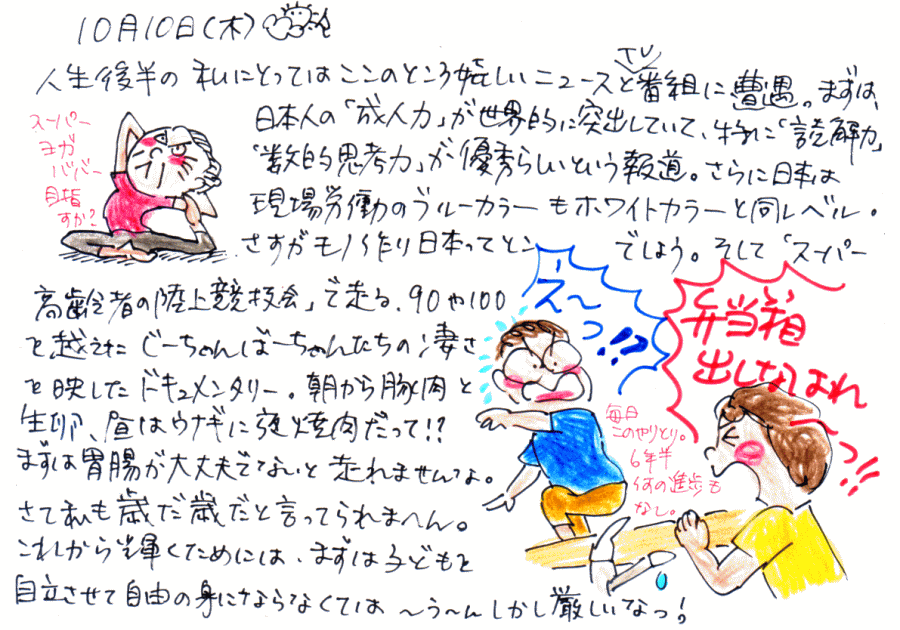 10月10日(木)
TV
人生後半の私にとってはここのところ嬉しいニュースと番組に遭遇。まずは、
日本人の「成人力」が世界的に突出していて、特に「読解力」
「数的思考力」が優秀らしいという報道。さらに日本は
現場労働のブルーカラーもホワイトカラーと同レベル。
さすがモノ作り日本ってとこ でしょう。そして「スーパー
高齢者の陸上競技会」で走る、90や100
を越えたじーちゃんばーちゃんたちの凄さ
を映したドキュメンタリー。朝から豚肉と
生卵、昼はウナギに夜焼肉だって!!
まずは胃腸が大丈夫でないと走れませんな。
さて私も歳だ歳だと言ってられまへん。
これから輝くためには、まずは子どもを
自立させて自由の身にならなくては 〜う〜んしかし厳しいなっ!
スーパー
ヨガ
ババー
目指
すか?
え〜
っ!!?
弁当箱
出しなはれ
〜っ!!
毎日
このやりとり。
6年半
何の進歩も
なし。